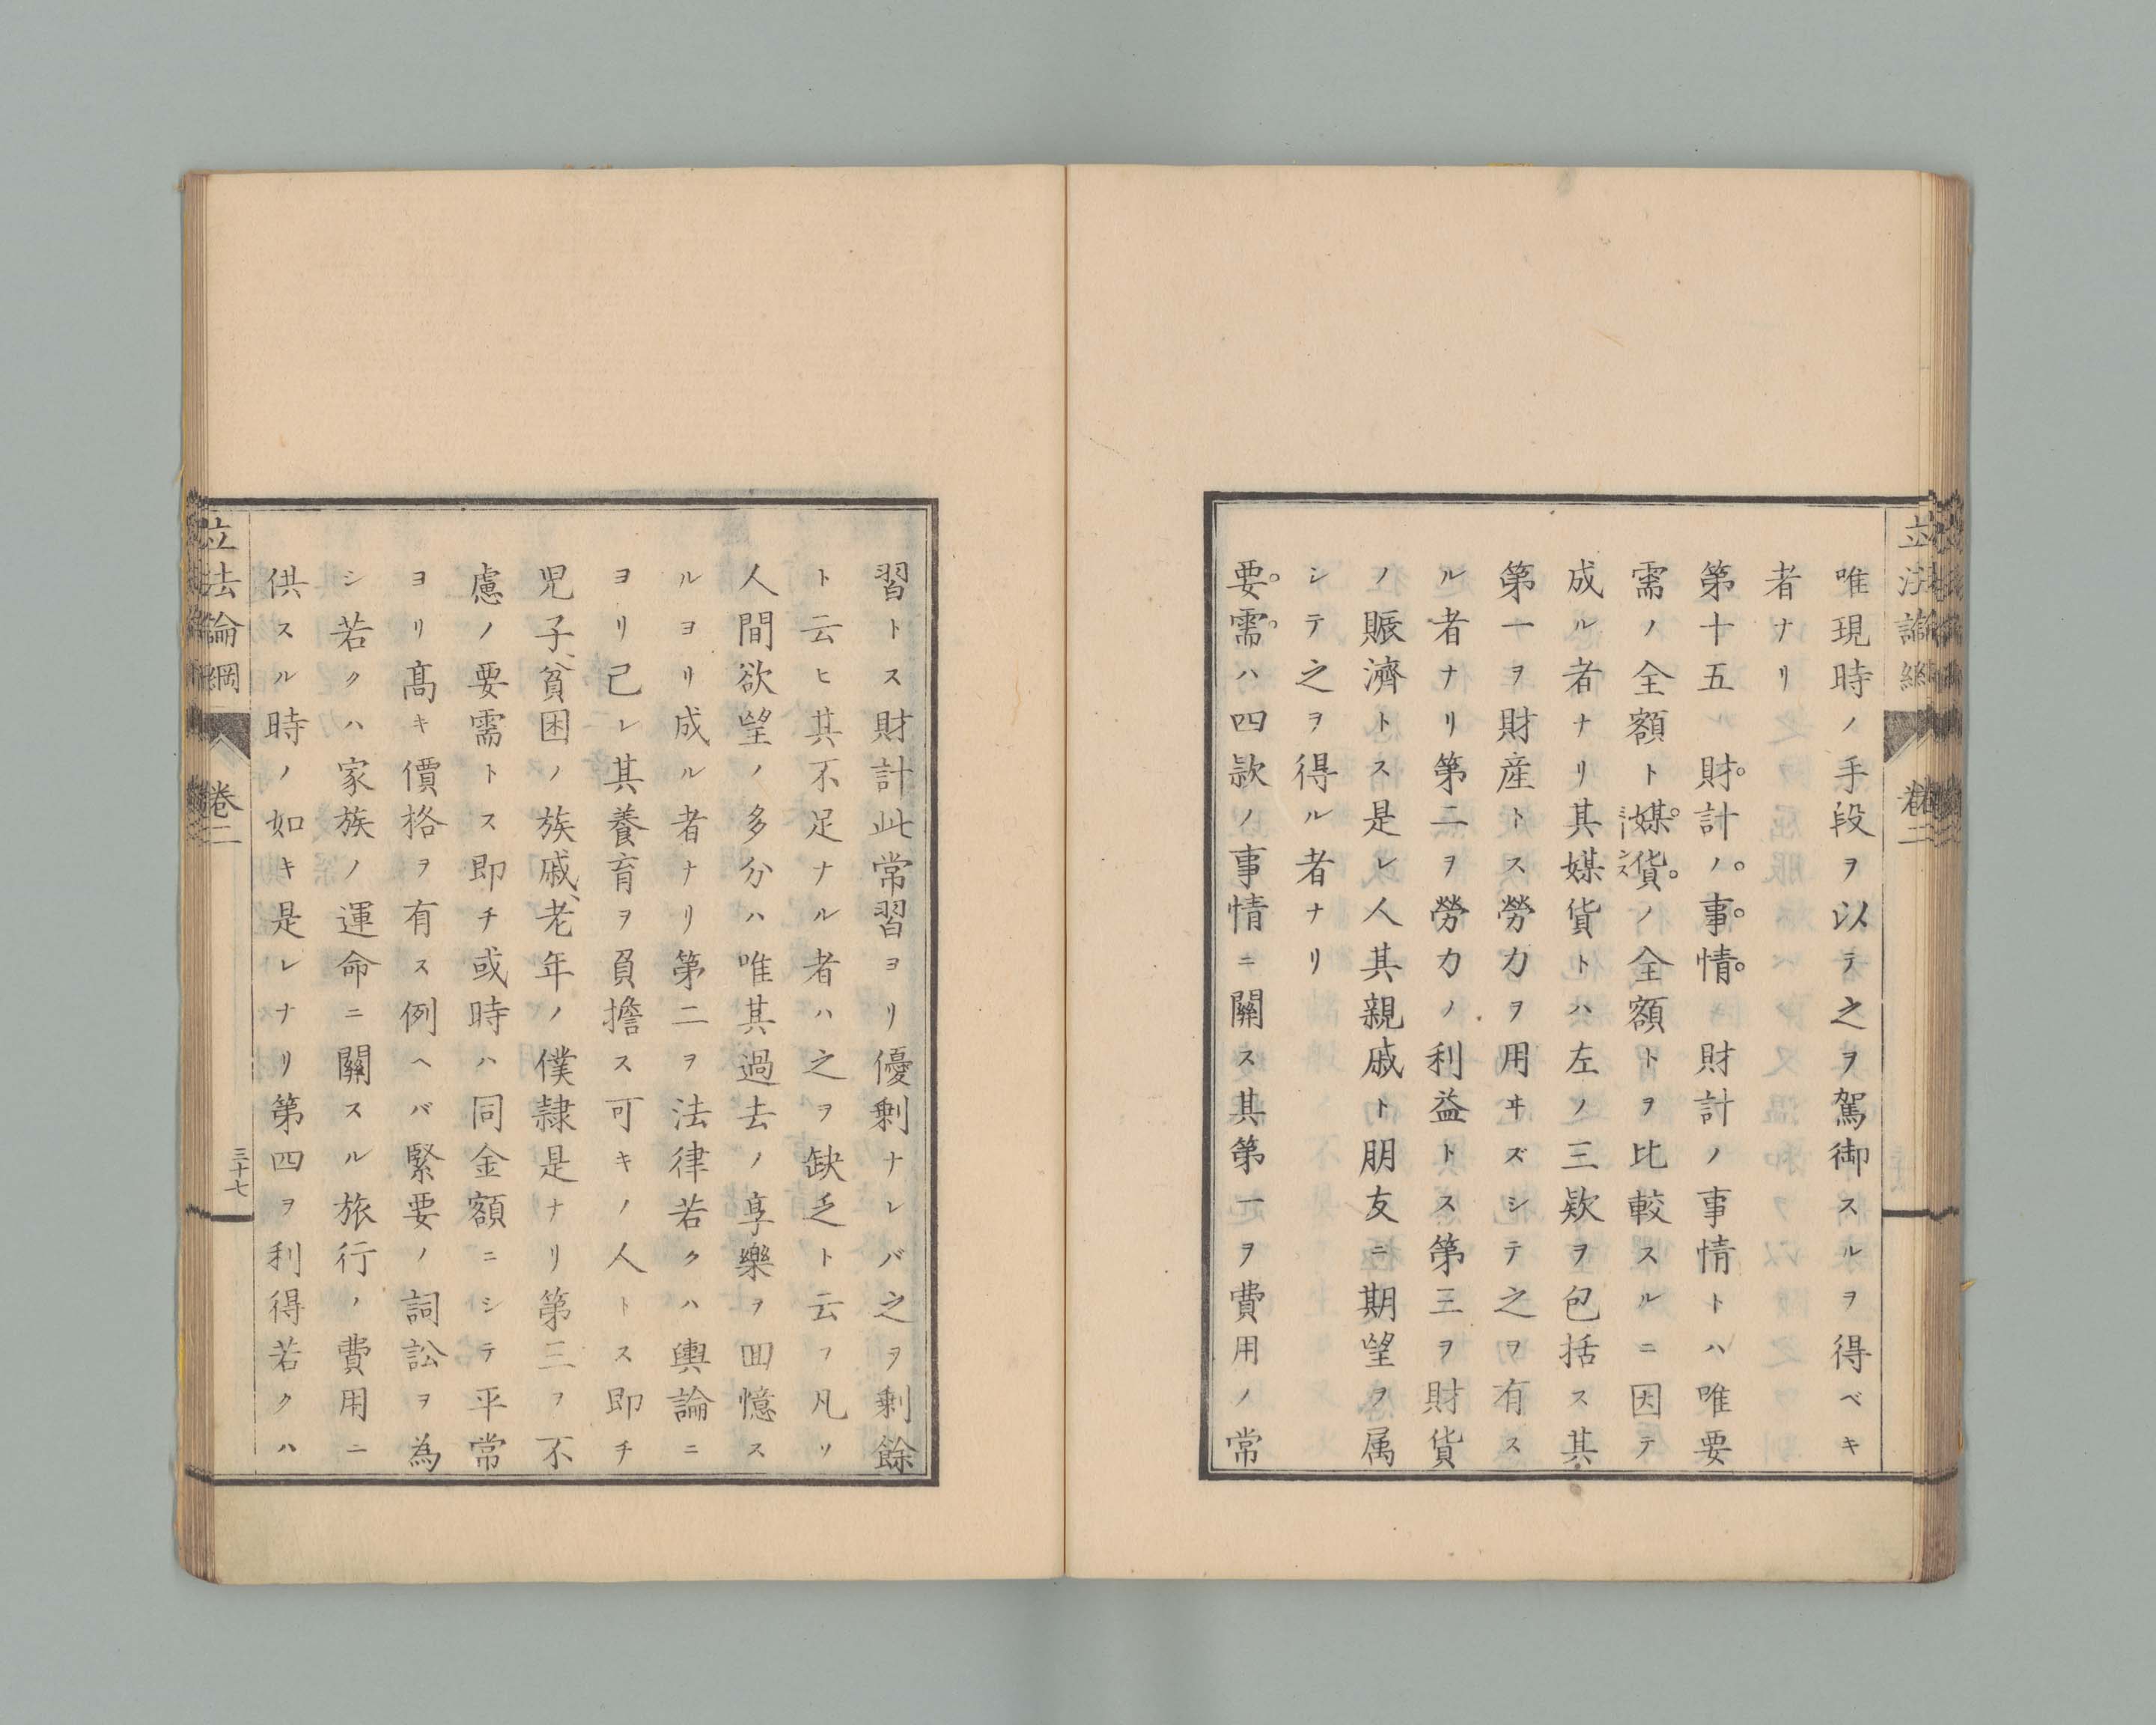 唯現時ノ手段ヲ以テ之ヲ駕御スルヲ得ベキ
者ナリ
第十五 財計ノ事情 財計ノ事情トハ唯要
需ノ全額ト媒貨ノ全額トヲ比較スルニ因テ
成ル者ナリ其媒貨トハ左ノ三欵ヲ包括ス其
第一ヲ財産トス勞力ヲ用ヰズシテ之ヲ有ス
ル者ナリ第二ヲ勞力ノ利益トス第三ヲ財貨
ノ賑濟トス是レ人其親戚ト朋友ニ期望ヲ属
シテ之ヲ得ル者ナリ
要需ハ四欵ノ事情ニ關ス其第一ヲ費用ノ常
習トス財計此常習ヨリ優剰ナレバ之ヲ剰餘
ト云ヒ其不足ナル者ハ之ヲ缺乏ト云フ凡ソ
人間欲望ノ多分ハ唯其過去ノ享樂ヲ回憶ス
ルヨリ成ル者ナリ第二ヲ法律若クハ輿論ニ
ヨリ己レ其養育ヲ負擔ス可キノ人トス即チ
児子、貧困ノ族戚、老年ノ僕隷是ナリ第三ヲ不
慮ノ要需トス即チ或時ハ同金額ニシテ平常
ヨリ髙キ價格ヲ有ス例ヘバ緊要ノ詞訟ヲ為
シ若クハ家族ノ運命ニ關スル旅行ノ費用ニ
供スル時ノ如キ是レナリ第四ヲ利得若クハ
立法論綱 卷二 三十七